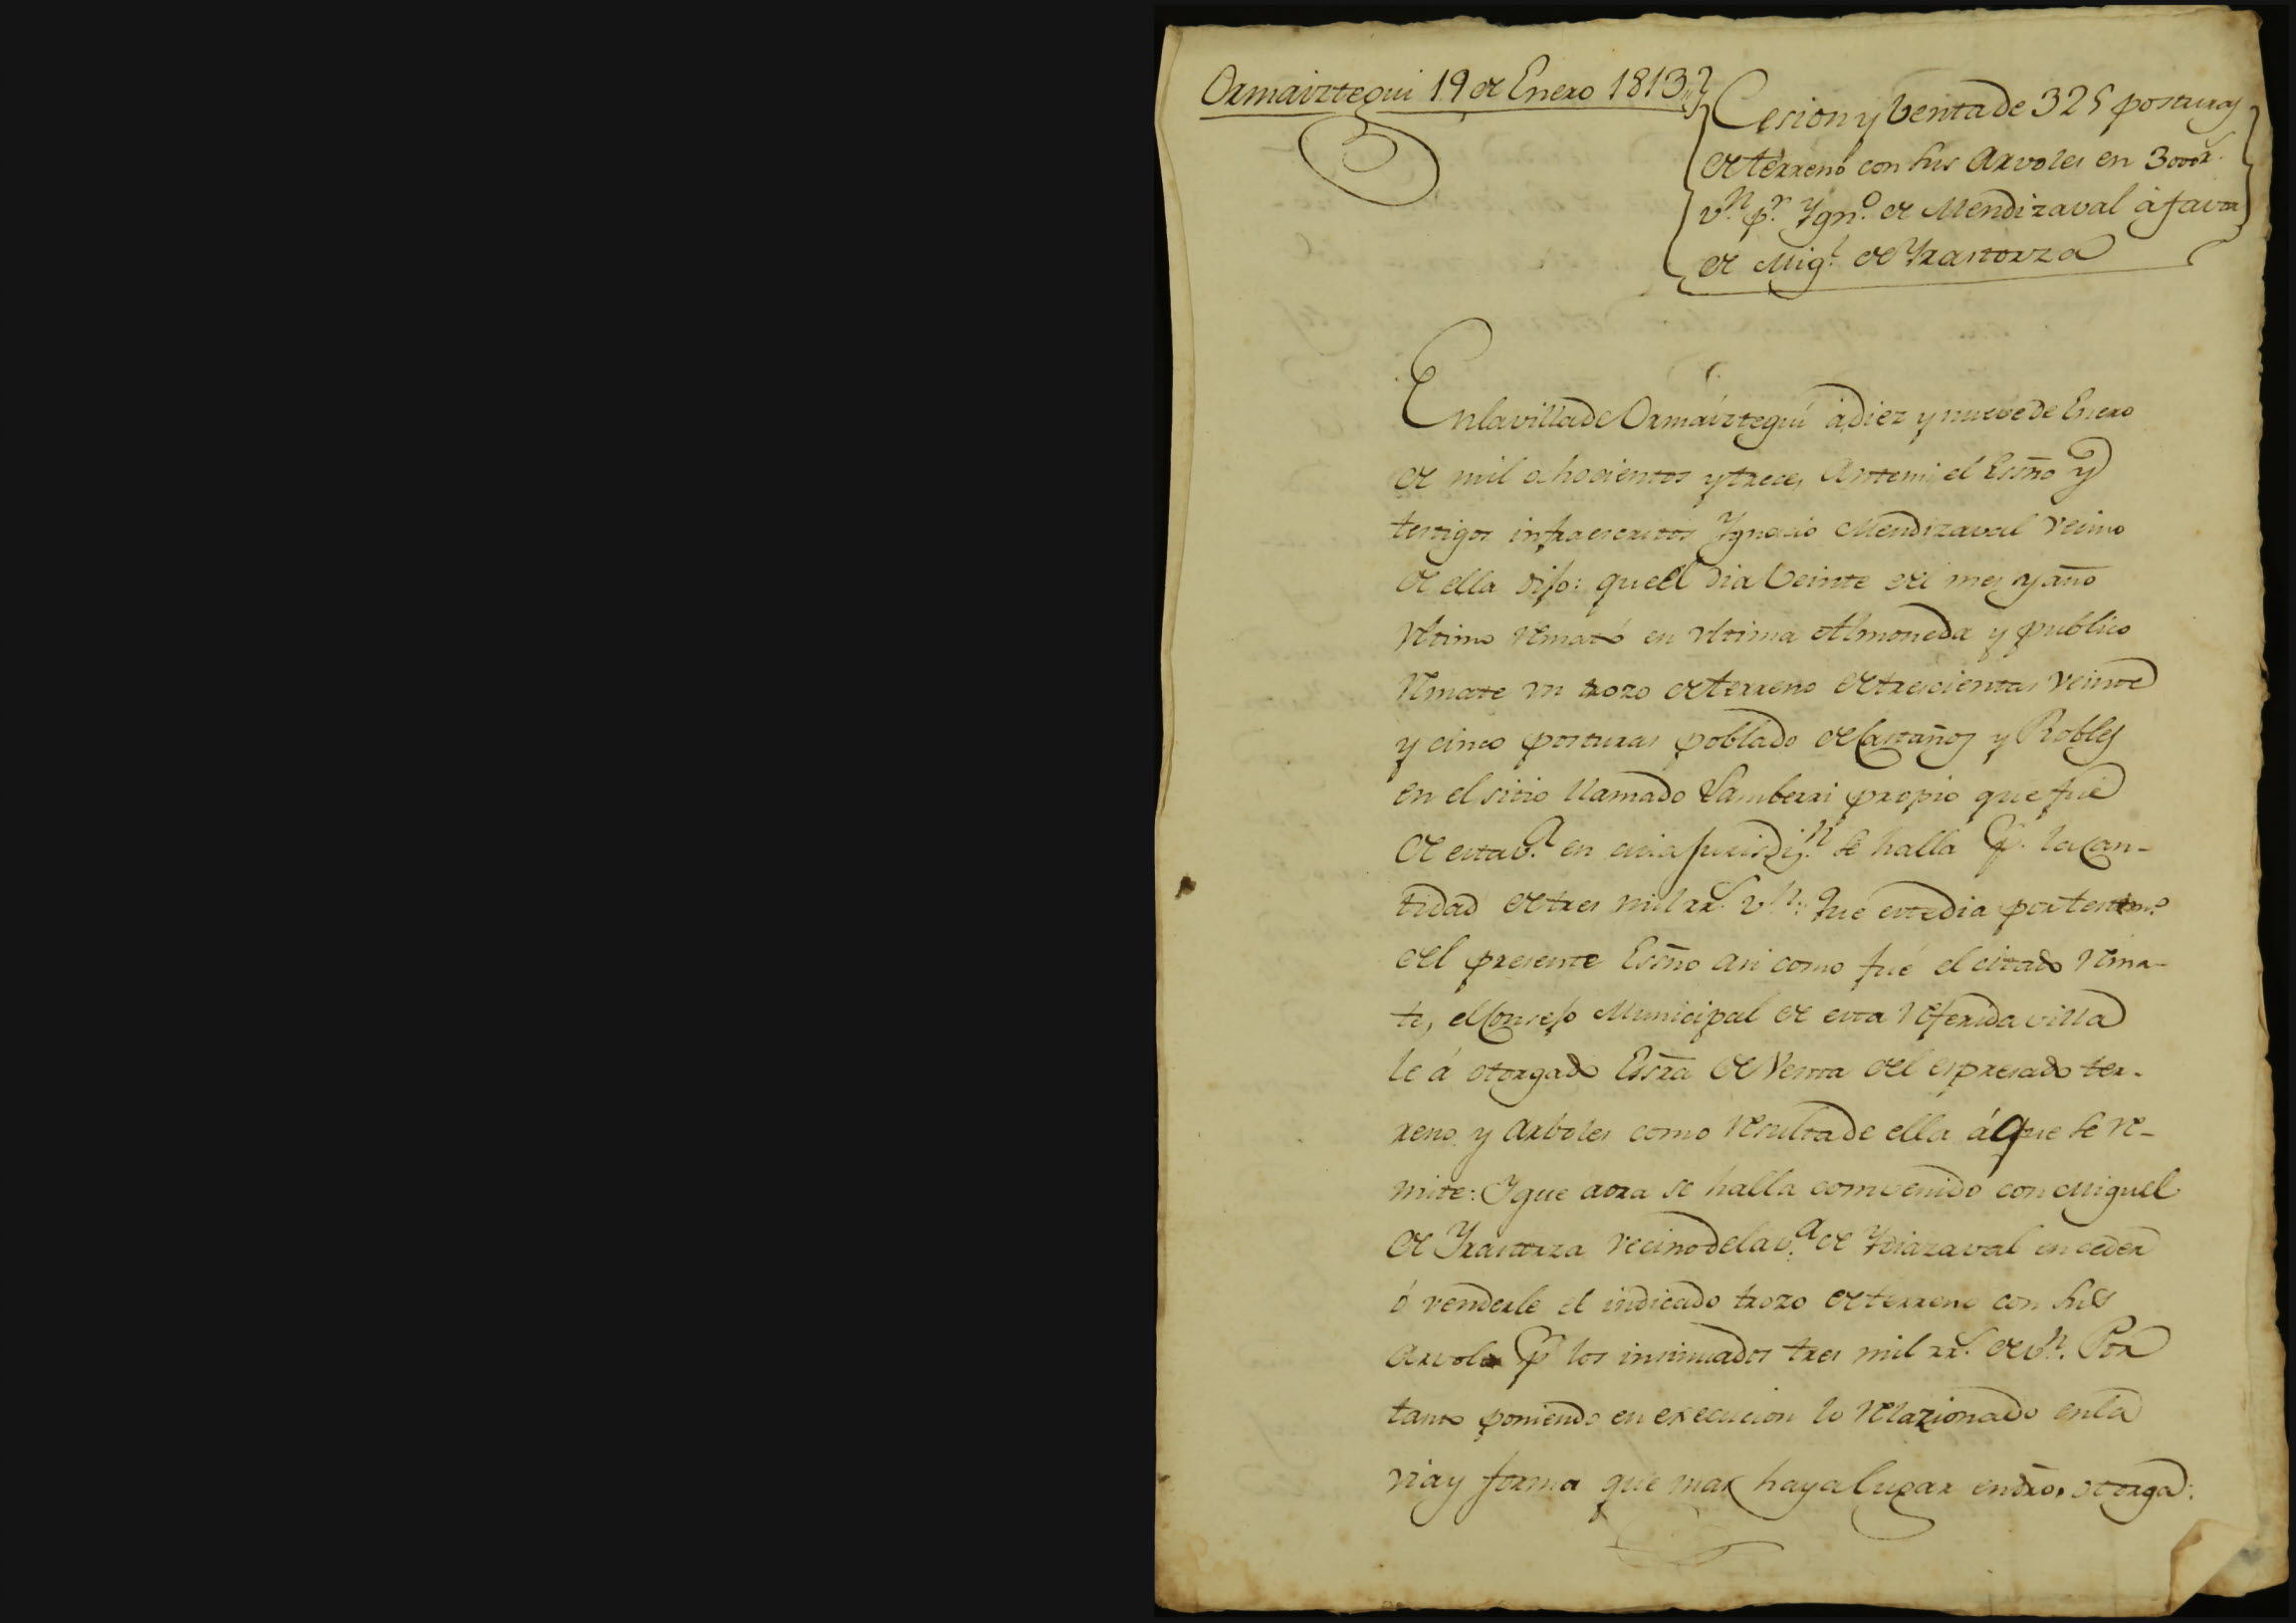 Ormaiztegui 19 de Enero 1813,,
Cesion y Venta de 325 posturas
de terreno con sus Arvoles en 3000 rs.
vn. pr. Ygno. de Mendizaval à favor
de Migl. de Yrastorza
En la villa de Ormáiztegui à diez y nueve de Enero
de mil ochocientos y trece, Ante mi el Essno y
testigos infraescritos Ygnacio Mendizaval vecino
de ella dijo: que el dia Veinte del mes y año
ultimo remató en ultima Almoneda y publico
remate un trozo de terreno de trescientas veinte
y cinco posturas poblado de Castaños y Robles
en el sitio llamado Lamberri propio que fué
de esta va. en cuia Jurisdin. se halla pr. la can-
tidad de tres mil rrs. vn.: Que este dia por testimo.
del presente Essno asi como fué el citado rema-
te, el Consejo Municipal de esta referida villa
le á otorgado Essra de Venta del espresado ter-
reno y arboles como resulta de ella á que se re-
mite: Y que aora se halla comvenido con Miguel
de Yrastorza vecino de la va. de Ydiazaval en ceder
ó venderle el indicado trozo de terreno con sus
Arvoles pr. los insinuados tres mil rrs. de vn. Por
tanto poniendo en execucion lo relazionado en la
via y forma que mas haya lugar en dro, otorga: